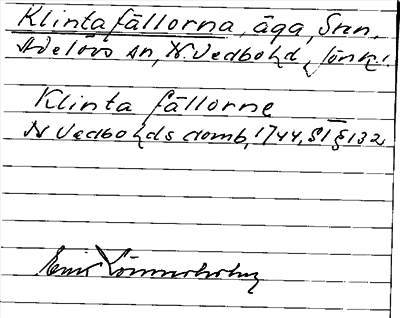 Klintafällorna, äga, Srn,
Adelövs sn, N. Vedbo hd, Jönk.
Klinta fällorne
N Vedbo hds domb, 1744, ST § 132
Emil Lönnerholm